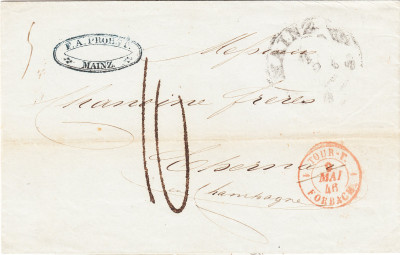 F. A. PROBST
MAINZ.
MAINZ
Messieurs
Chanoine Frères
Epernay
en Champagne
16
TOUR-T.
2
MAI
46
FORBACH